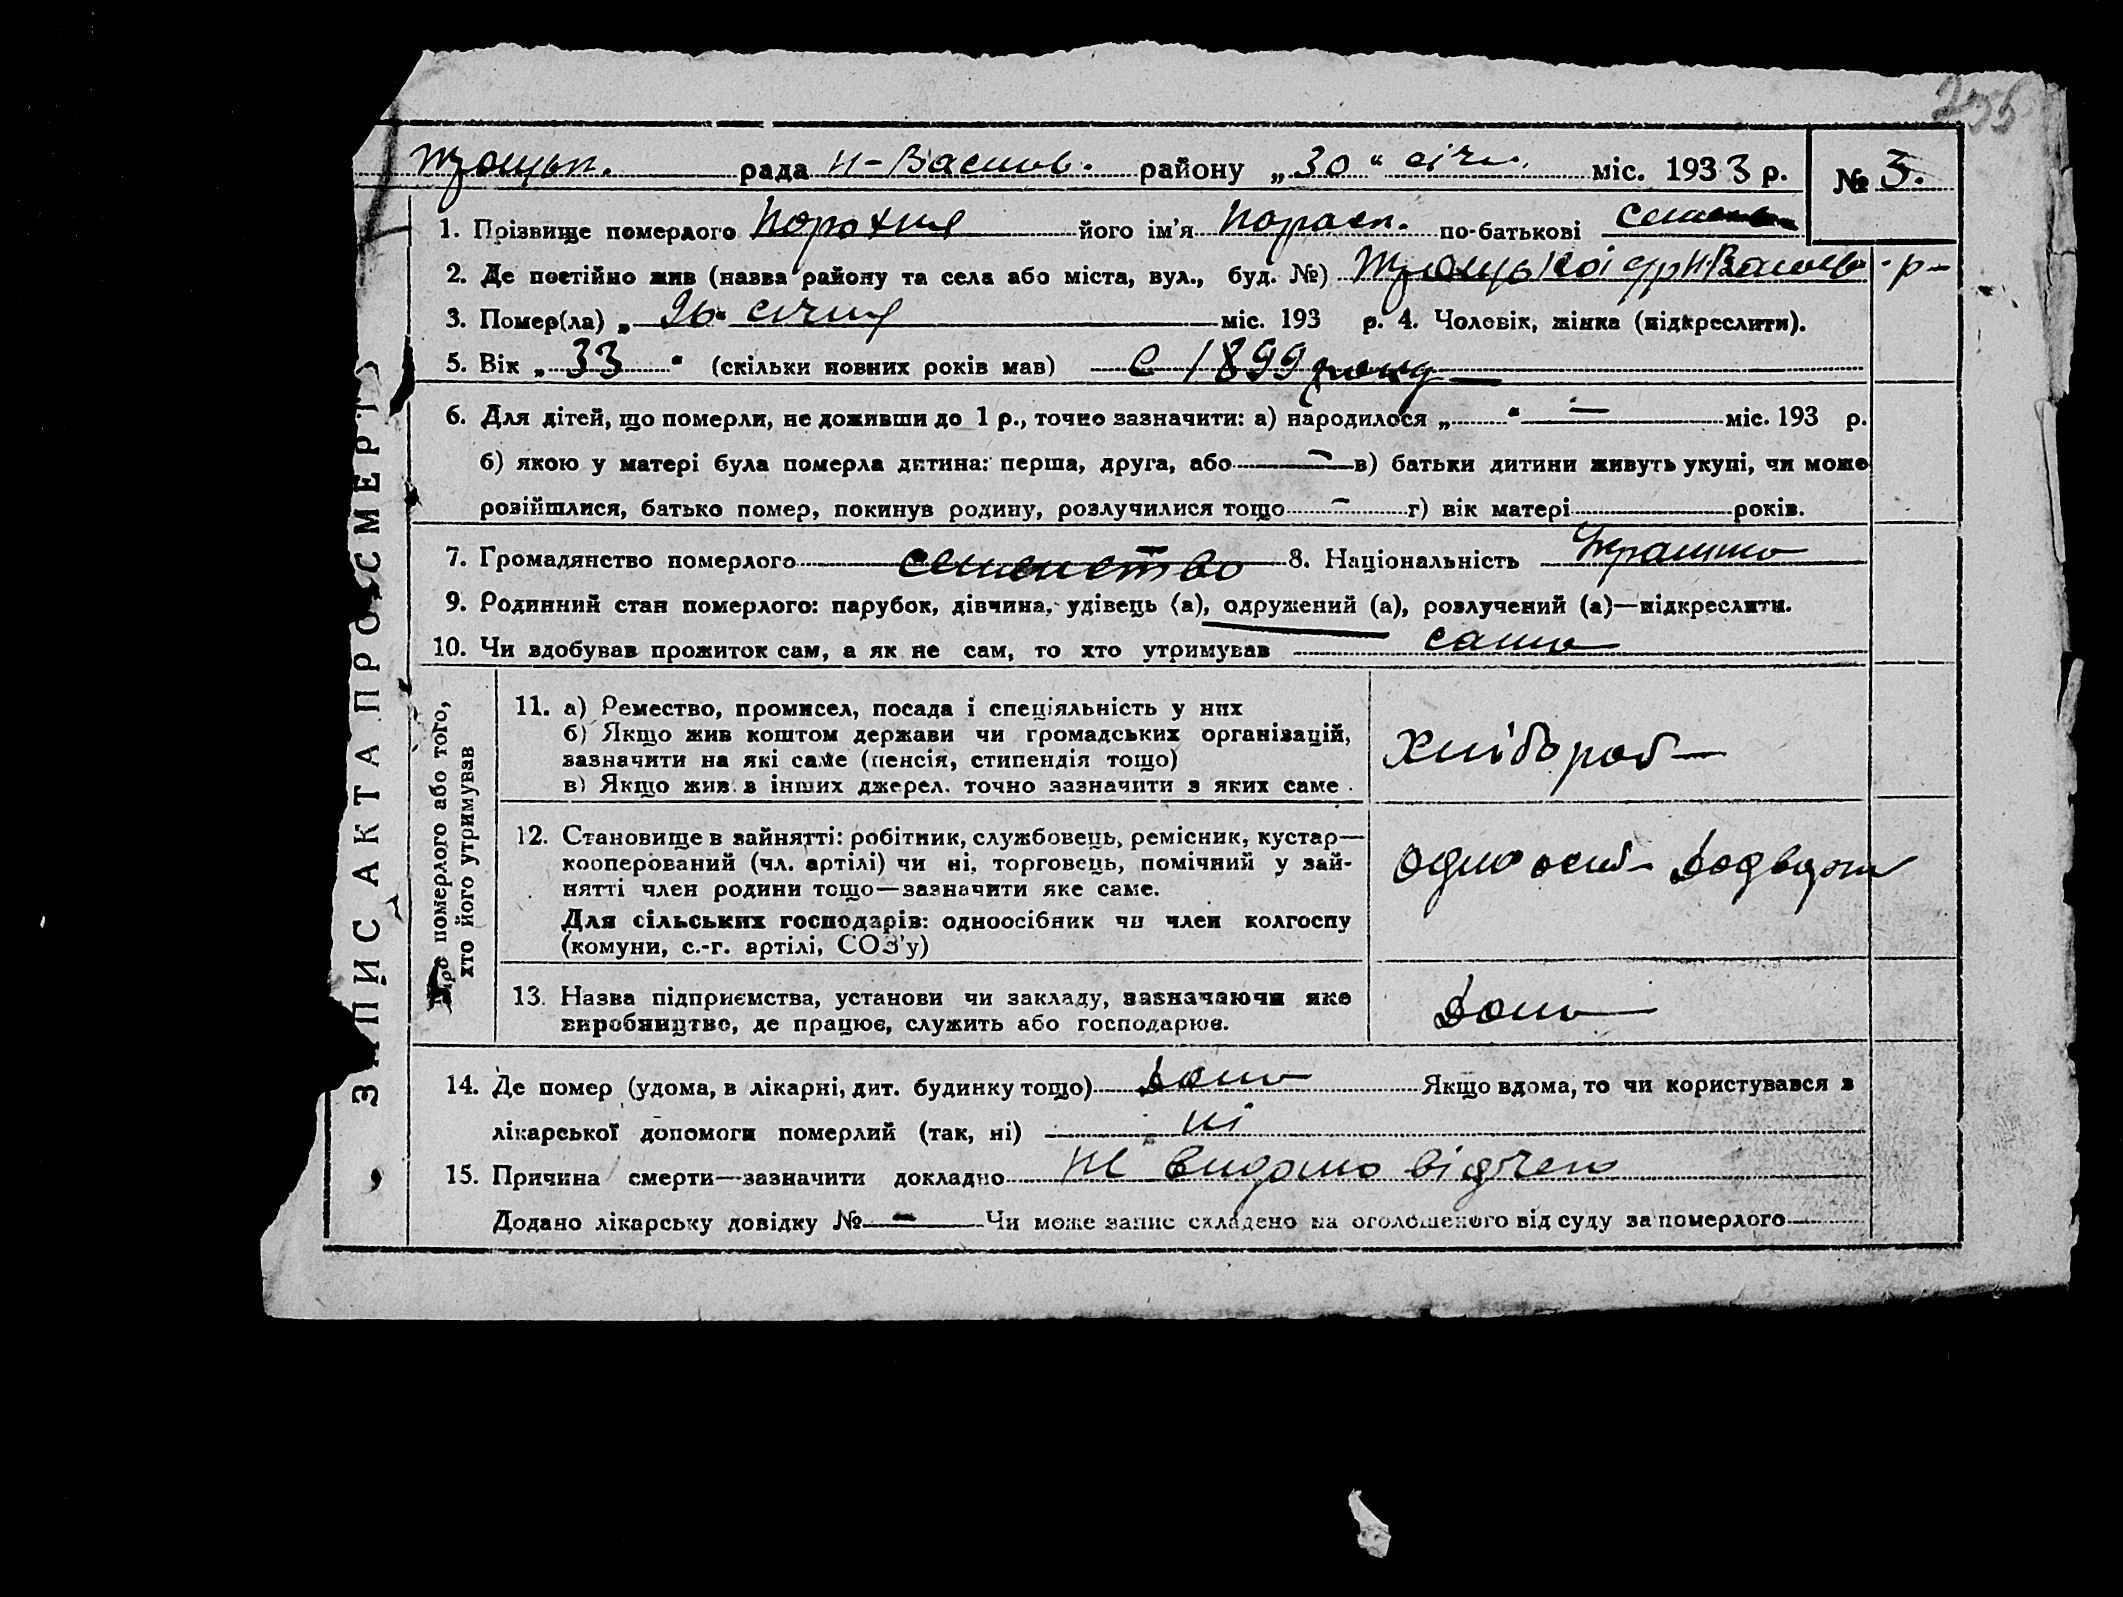 256
Троцьк. рада Н-Васил. району „30“ січн. міс. 1933 р. № 3.
1. Прізвище померлого Порохня його ім'я Пораск. по-батькові
2. Де постійно жив (назва району та села або міста, вул., буд. №) Троцької с/р Н Васильв -р-
3. Помер(ла) „26“ січня міс. 193 р. 4. Чоловік, жінка (підкреслити).
5. Вік „33“ (скільки повних років мав) с 1899 року
6. Для дітей, що померли, не доживши до 1 р., точно зазначити: а) народилося „ “ — міс. 193 р.
б) якою у матері була померла дитина: перша, друга, або — в) батьки дитини живуть укупі, чи може
розійшлися, батько помер, покинув родину, розлучилися тощо — г) вік матері років.
7. Громадянство померлого 8. Національність Україн
9. Родинний стан померлого: парубок, дівчина, удівець (а), одружений (а), розлучений (а)—підкреслити.
10. Чи здобував прожиток сам, а як не сам, то хто утримував сама
ЗАПИС АКТА ПРО СМЕРТЬ
Про померлого або того,
хто його утримував
11. а) Ремество, промисел, посада і спеціяльність у них
б) Якщо жив коштом держави чи громадських організацій,
зазначити на які саме (пенсія, стипендія тощо)
в) Якщо жив з інших джерел, точно зазначити з яких саме
Хлібороб
12. Становище в зайнятті: робітник, службовець, ремісник, кустар—
кооперований (чл. артілі) чи ні, торговець, помічний у зай-
нятті член родини тощо—зазначити яке саме.
Для сільських господарів: одноосібник чи член колгоспу
(комуни, с.-г. артілі, СОЗ'у)
одноосіб
13. Назва підприємства, установи чи закладу, зазначаючи яке
виробництво, де працює, служить або господарює.
дома
14. Де помер (удома, в лікарні, дит. будинку тощо) дома Якщо вдома, то чи користувався з
лікарської допомоги померлий (так, ні) ні
15. Причина смерти—зазначити докладно не видомо
Додано лікарську довідку № — Чи може запис складено на оголошеного від суду за померлого